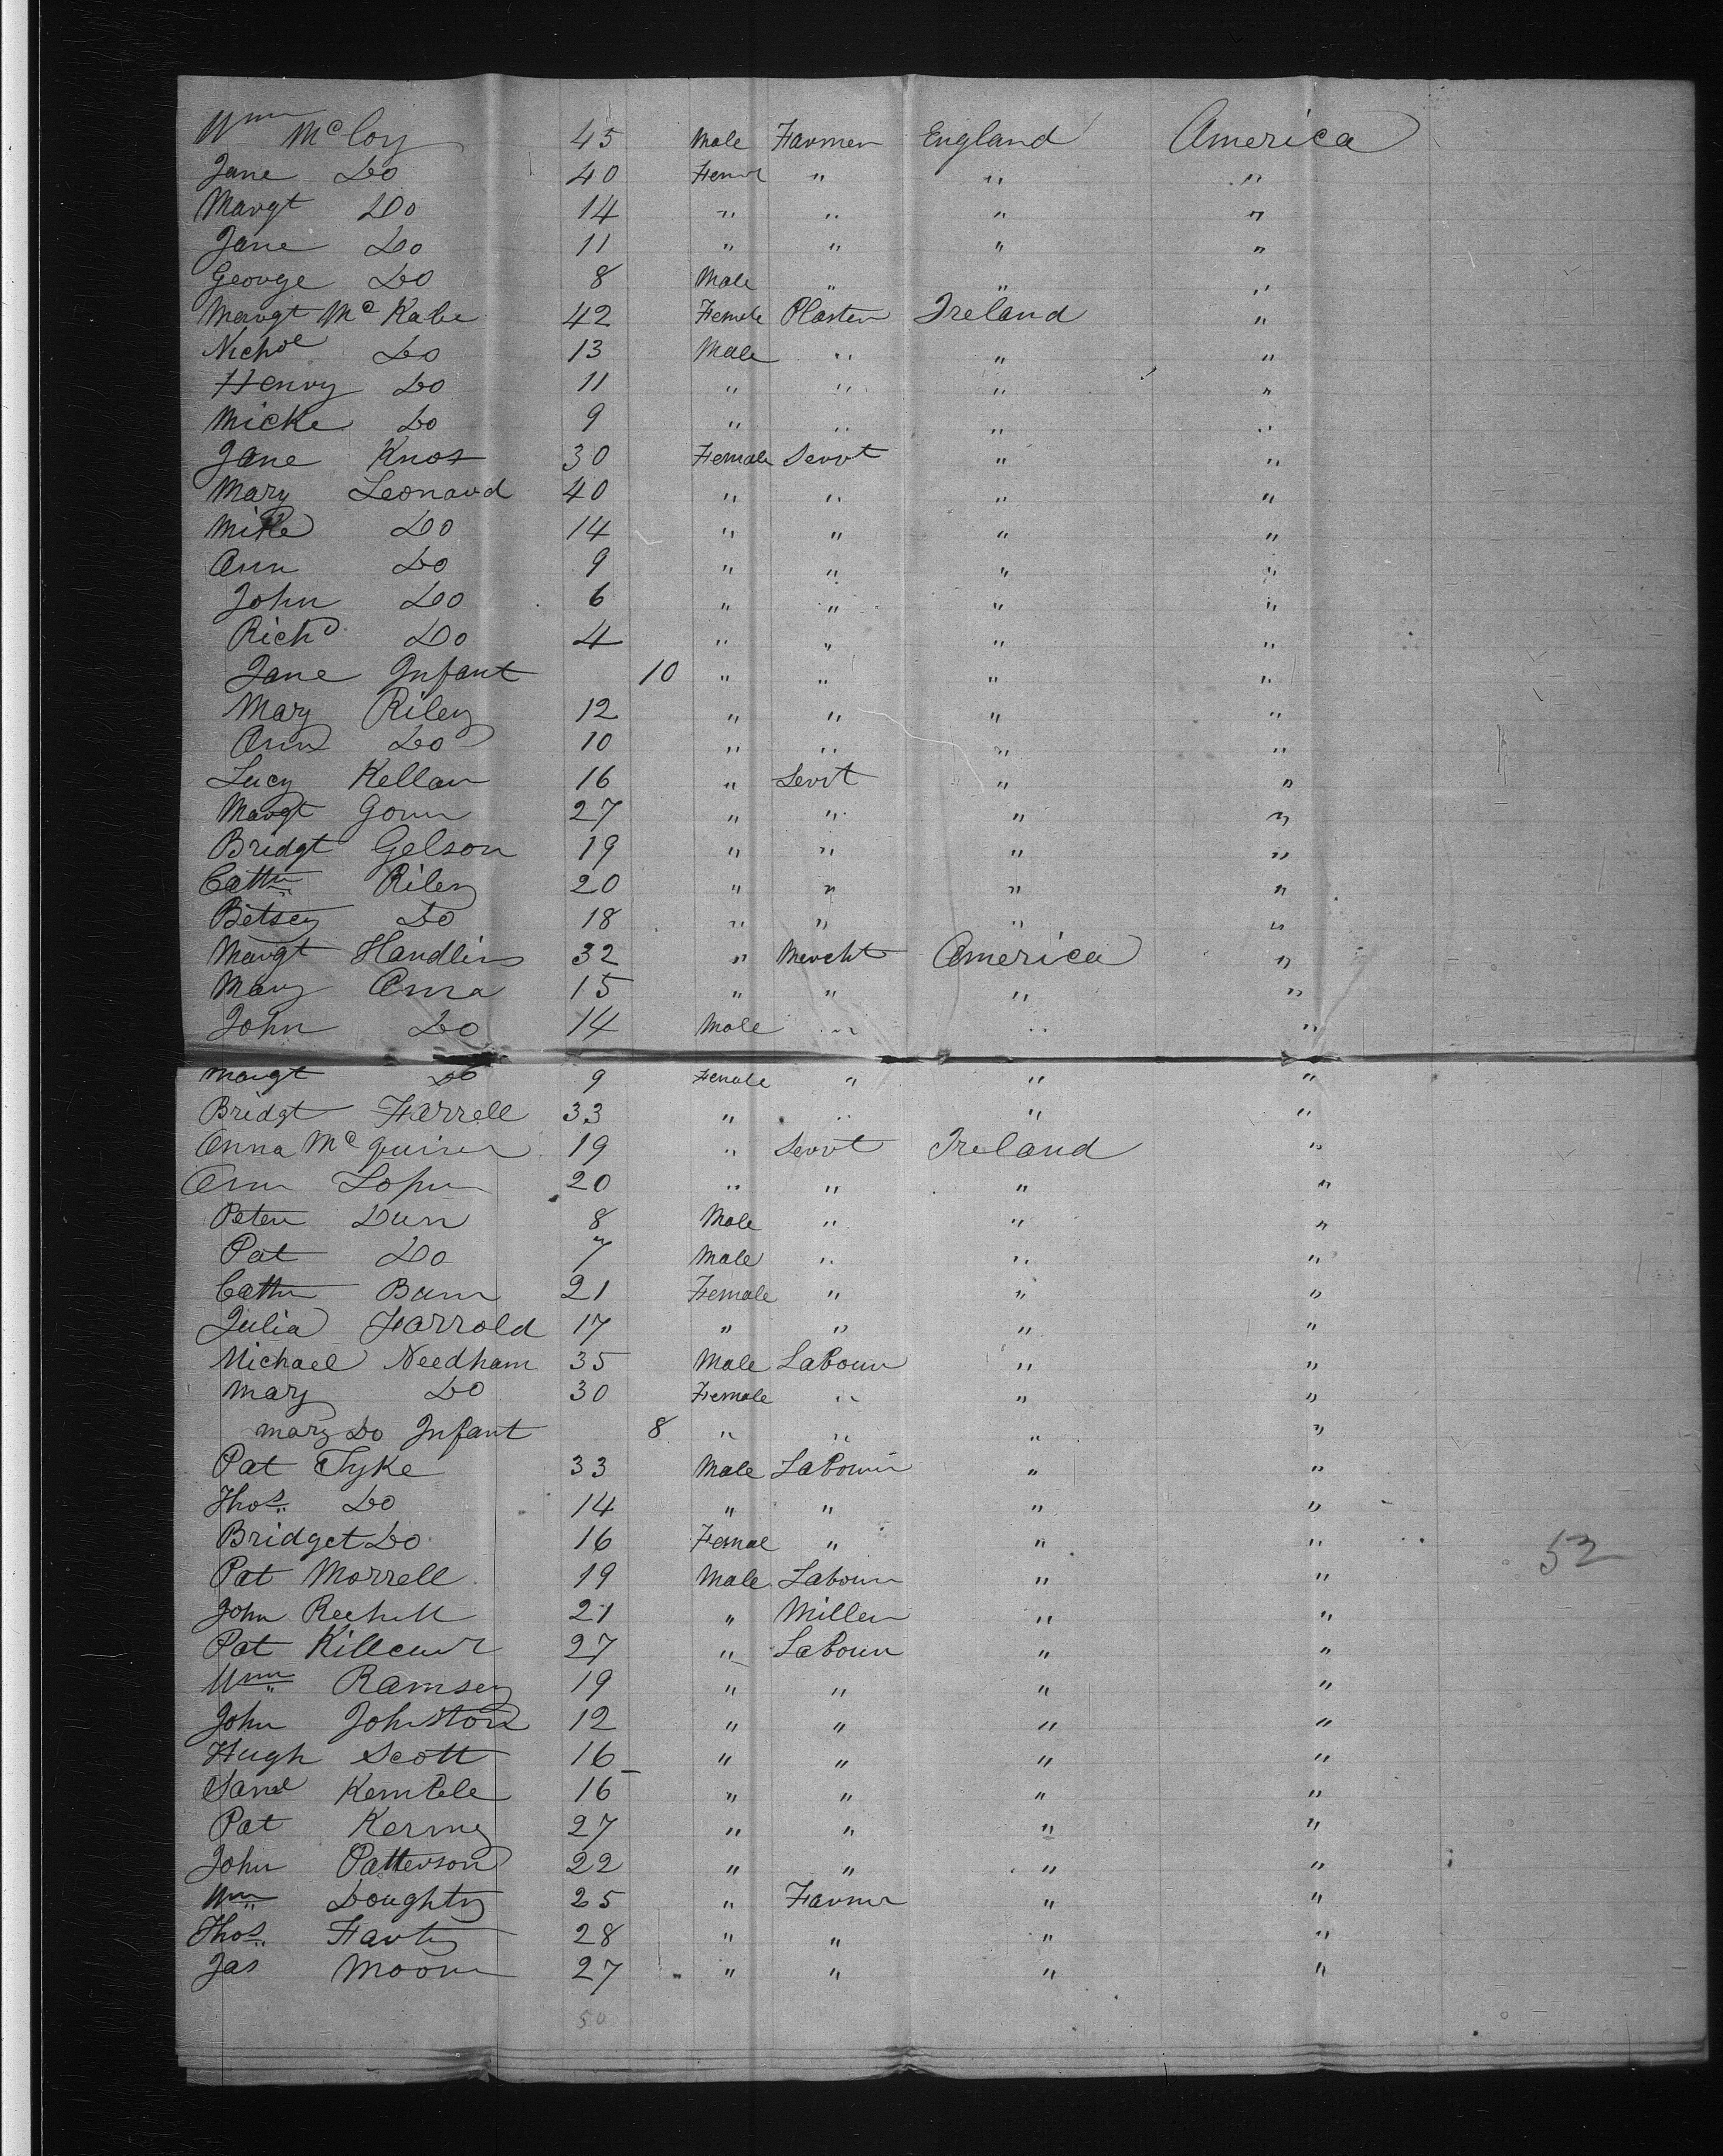 Wm McCoy 45 Male Farmer England America
Jane Do 40 Feml " " "
Margt Do 14 " " " "
Jane Do 11 " " " "
George Do 8 Male " " "
Margt McKabe 42 Female Plaster Ireland "
Nichol Do 13 Male " " "
Henry Do 11 " " " "
Micke Do 9 " " " "
Jane Knox 30 Female Servt " "
Mary Leonard 40 " " " "
Mike Do 14 " " " "
Ann Do 9 " " " "
John Do 6 " " " "
Richd Do 4 " " " "
Jane Infant 10 " " " "
Mary Riley 12 " " " "
Ann Do 10 " " " "
Lucy Kellan 16 " Servt " "
Margt Gonn 27 " " " "
Bridgt Gelson 19 " " " "
Cathn Riley 20 " " " "
Betsey Do 18 " " " "
Margt Handlin 32 " Mercht America "
Mary Anna 15 " " " "
John Do 14 Male " " "
Margt Do 9 Female " " "
Bridgt Farrell 33 " " " "
Anna McGuiren 19 " Servt Ireland "
Ann 20 " " " "
Peter Dun 8 Male " " "
Pat Do 7 Male " " "
Cathn Bunn 21 Female " " "
Julia Farrold 17 " " " "
Michael Needham 35 Male Labour " "
Mary Do 30 Female " " "
Mary Do Infant 8 " " " "
Pat Tyke 33 Male Labour " "
Thos Do 14 " " " "
Bridget Do 16 Femal " " "
Pat Morrell 19 Male Labour " "
John 21 " Miller " "
Pat 27 " Labour " "
Wm Ramsey 19 " " " "
John Johnston 12 " " " "
Hugh Scott 16 " " " "
Saml Kemble 16 " " " "
Pat 27 " " " "
John Patterson 22 " " " "
Wm Doughty 25 " Farmr " "
Thos 28 " " " "
Jas Moore 27 " " " "
50
53